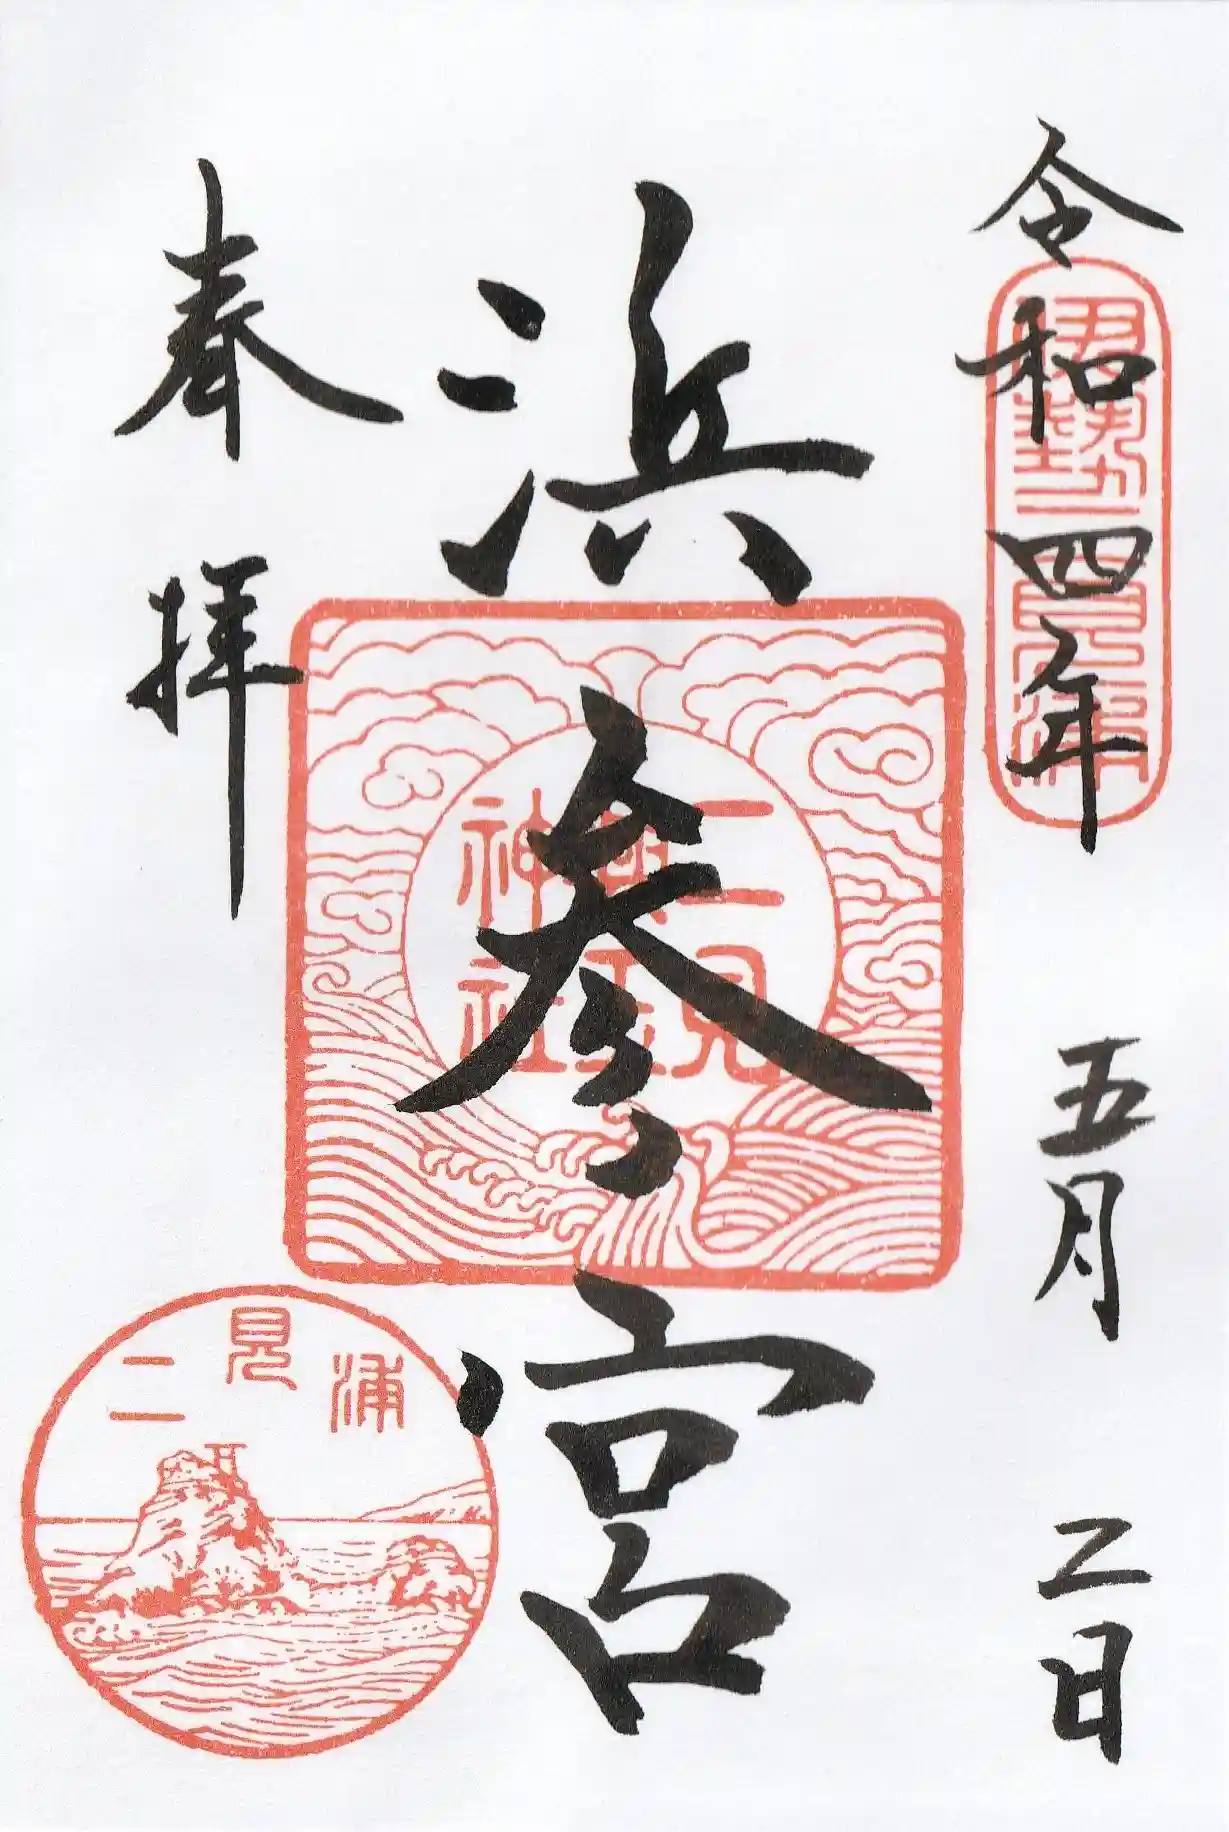 令和四年 五月 二日
伊勢二見ヶ浦
浜参宮
二見
興玉
神社
奉拝
二見浦